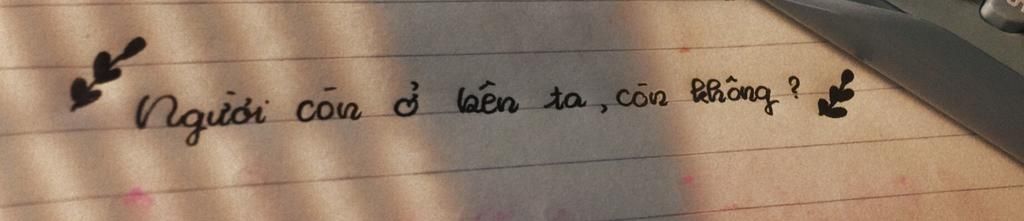 Người còn ở bên ta, còn không?